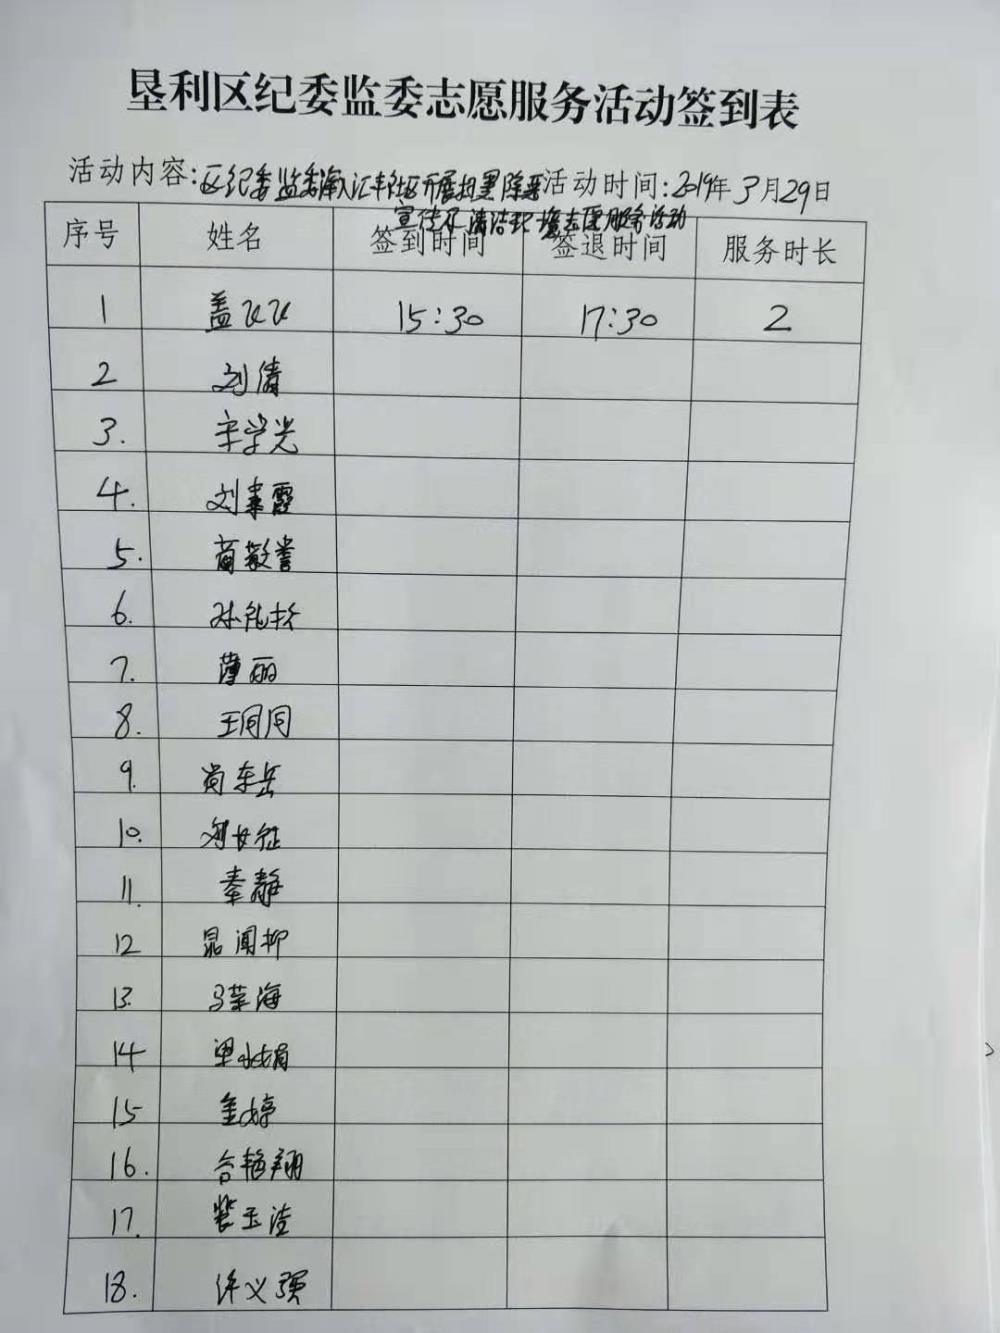 垦利区纪委监委志愿服务活动签到表
活动内容:区纪委监委深入汇丰社区开展扫黑除恶 活动时间:2019年3月29日
宣传及清洁环境志愿服务活动
序号 姓名 签到时间 签退时间 服务时长
1 盖 15:30 17:30 2
2 刘倩
3. 宋学光
4. 刘霞
5. 商敬
6. 孙
7. 薄丽
8. 王同同
9. 尚东岳
10. 刘长征
11. 秦静
12 闻柳
13. 马荣海
14 娟
15 婷
16. 艳翔
17. 裴玉洁
18. 许义强